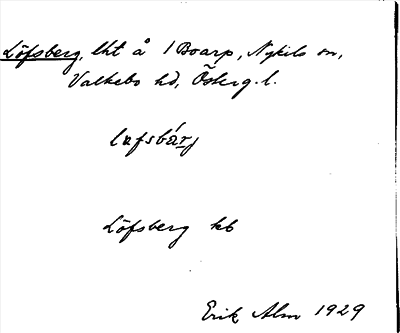 Löfsberg, lht å 1 Boarp, Nykils sn,
Valkebo hd, Österg. l.
lǫfsbárj
Löfsberg kb
Erik Alm 1929